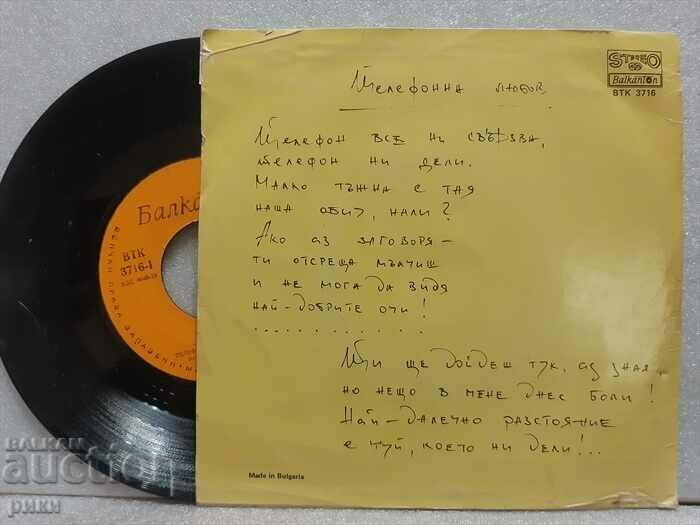 STEREO
Balkanton
BTK 3716
Телефонна любов
Телефон все ни свързва,
телефон ни дели.
Малко тъжна е тая
наша обич, нали?
Ако аз заговоря –
ти отсреща мълчиш
и не мога да видя
най-добрите очи!
. . . . . . . . . . . .
Ти ще дойдеш тук, аз зная,
но нещо в мене днес боли!
Най-далечно разстояние
е туй, което ни дели!...
Made in Bulgaria
Балка
ВТК
3716-I
БАЛКАН
auction
рики